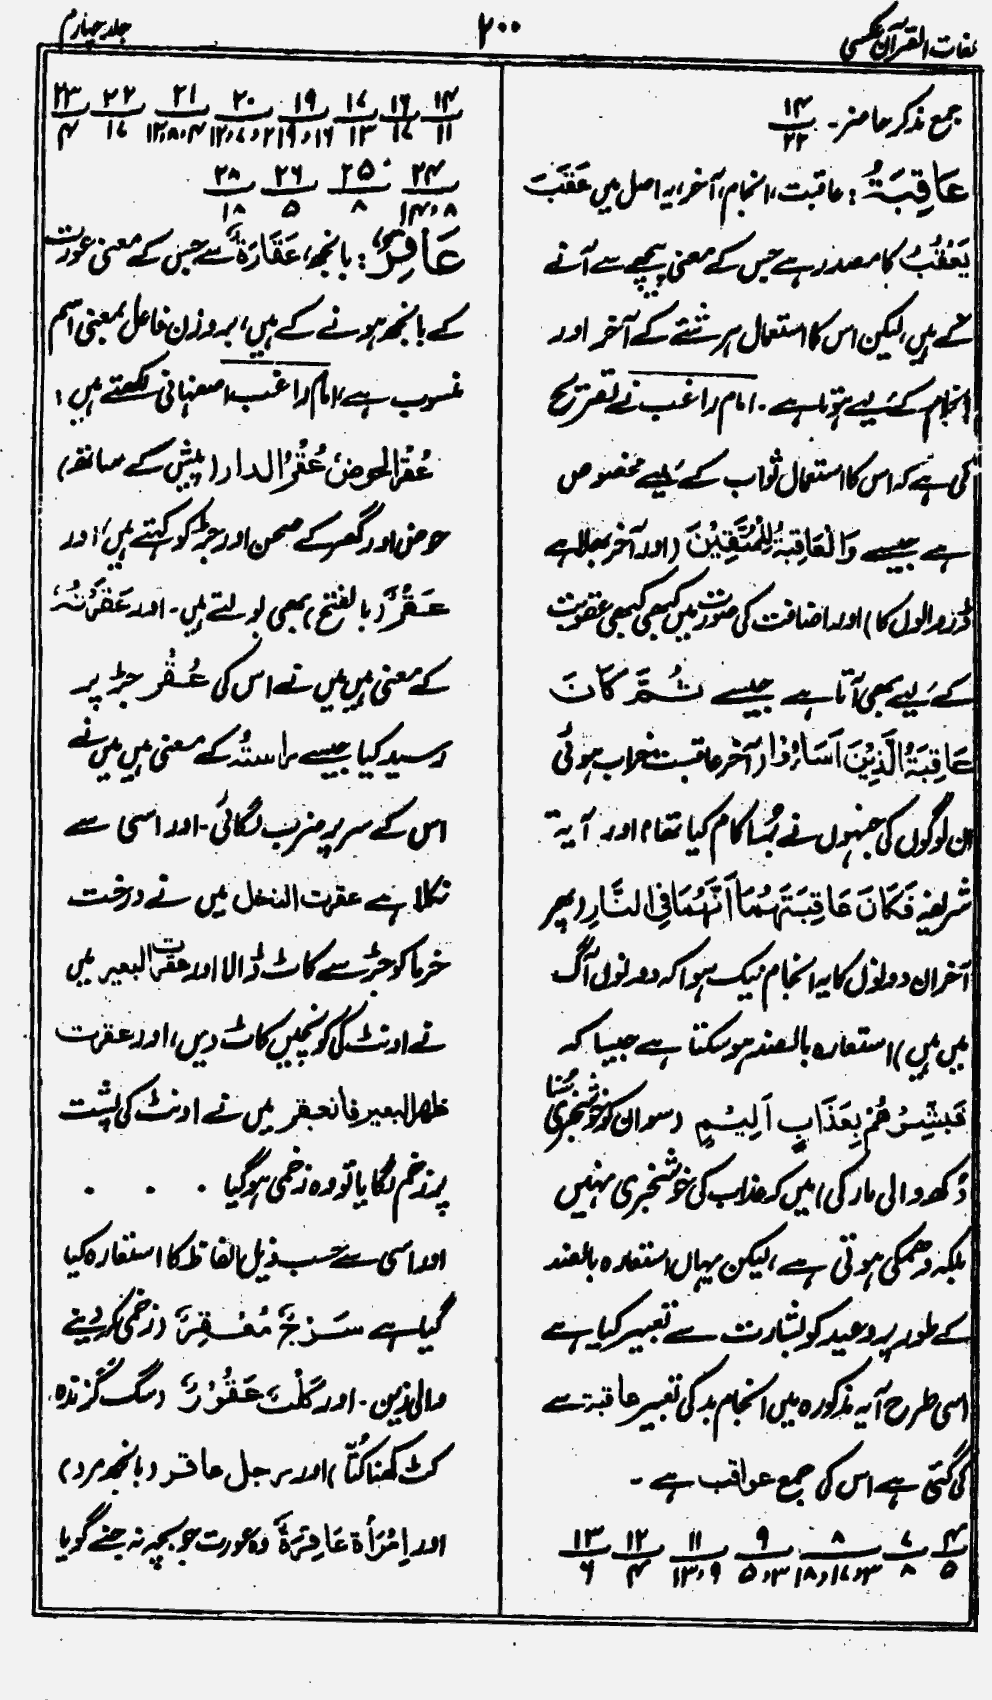 لغات القرآن عکسی
۲۰۰
جلد چہارم
جمع مذکر حاضر۔ ۱۴/۲۲
عَاقِبَۃُ: عاقبت، انجام، آخر، یہ اصل میں عَقَبَ
یَعْقُبُ کا مصدر ہے جس کے معنی پیچھے سے آنے
کے ہیں، لیکن اس کا استعمال ہر شئے کے آخر اور
انجام کے لیے ہوتا ہے۔ امام راغب نے تصریح
کی ہے کہ اس کا استعمال ثواب کے لیے مخصوص
ہے جیسے وَالْعَاقِبَۃُ لِلْمُتَّقِیْنَ (اور آخر بھلا ہے
ڈر والوں کا) اور اضافت کی صورت میں کبھی کبھی عقوبت
کے لیے بھی آتا ہے جیسے ثُمَّ کَانَ
عَاقِبَۃَ الَّذِیْنَ اَسَاءُوْا (آخر عاقبت خراب ہوئی
ان لوگوں کی جنہوں نے بُرا کام کیا تھا) اور آیۃ
شریفہ فَکَانَ عَاقِبَتَہُمَا اَنَّہُمَا فِی النَّارِ (پھر
آخر ان دونوں کا یہ انجام ٹھیک ہوا کہ دونوں آگ
میں ہیں) استعارہ بالضد ہو سکتا ہے جیسا کہ
فَبَشِّرْھُمْ بِعَذَابٍ اَلِیْمٍ (سو ان کو خوشخبری سُنا
دُکھ والی مار کی) میں کہ عذاب کی خوشخبری نہیں
بلکہ دھمکی ہوتی ہے، لیکن یہاں استعارہ بالضد
کے طور پر وعید کو بشارت سے تعبیر کیا ہے
اسی طرح آیہ مذکورہ میں انجام بد کی تعبیر عاقبۃ سے
کی گئی ہے اس کی جمع عواقب ہے۔
۴/۵ ۷/۸ ۸/۳،۱۷،۱۸ ۹/۳،۵ ۱۱/۹،۱۳ ۱۲/۴ ۱۳/۶
۱۴/۱۱ ۱۶/۱۷ ۱۷/۱۳ ۱۹/۱۶،۱۹ ۲۰/۲،۷،۱۲ ۲۱/۴،۸،۱۲ ۲۲/۱۷ ۲۳/۴
۲۴/۸،۱۴ ۲۵/۸ ۲۶/۵ ۲۸/۱۸
عَاقِرٌ: بانجھ، عَقَارَۃٌ سے جس کے معنی عورت
کے بانجھ ہونے کے ہیں، بروزن فاعل بمعنی اسم
منسوب ہے، امام راغب اصفہانی لکھتے ہیں:
عُقْرُ الحوض عُقْرُ الدار (پیش کے ساتھ)
حوض اور گھر کے صحن اور جڑ کو کہتے ہیں، اور
عَقْرٌ (بالفتح) بھی بولتے ہیں۔ اور عَقَرْتُہٗ
کے معنی ہیں میں نے اس کی عُقْر جڑ پر
رسید کیا جیسے راستہٗ کے معنی ہیں میں نے
اس کے سر پر ضرب لگائی۔ اور اسی سے
نکلا ہے عقرت النخل میں نے درخت
خرما کو جڑ سے کاٹ ڈالا اور عقرت البعیر میں
نے اونٹ کی کونچیں کاٹ دیں، اور عقرت
ظھر البعیر فانعقر میں نے اونٹ کی پشت
پر زخم لگایا تو وہ زخمی ہوگیا . . .
اور اسی سے حسب ذیل الفاظ کا استعارہ کیا
گیا ہے سَرْجٌ مُعْقِرٌ (زخمی کر دینے
والی زین۔ اور کَلْبٌ عَقُوْرٌ (سگ گزندہ
کٹ کھنا کُتّا) اور رجل عاقر (بانجھ مرد)
اور اِمْرَأَۃٌ عَاقِرَۃٌ وہ عورت جو بچہ نہ جنے گویا